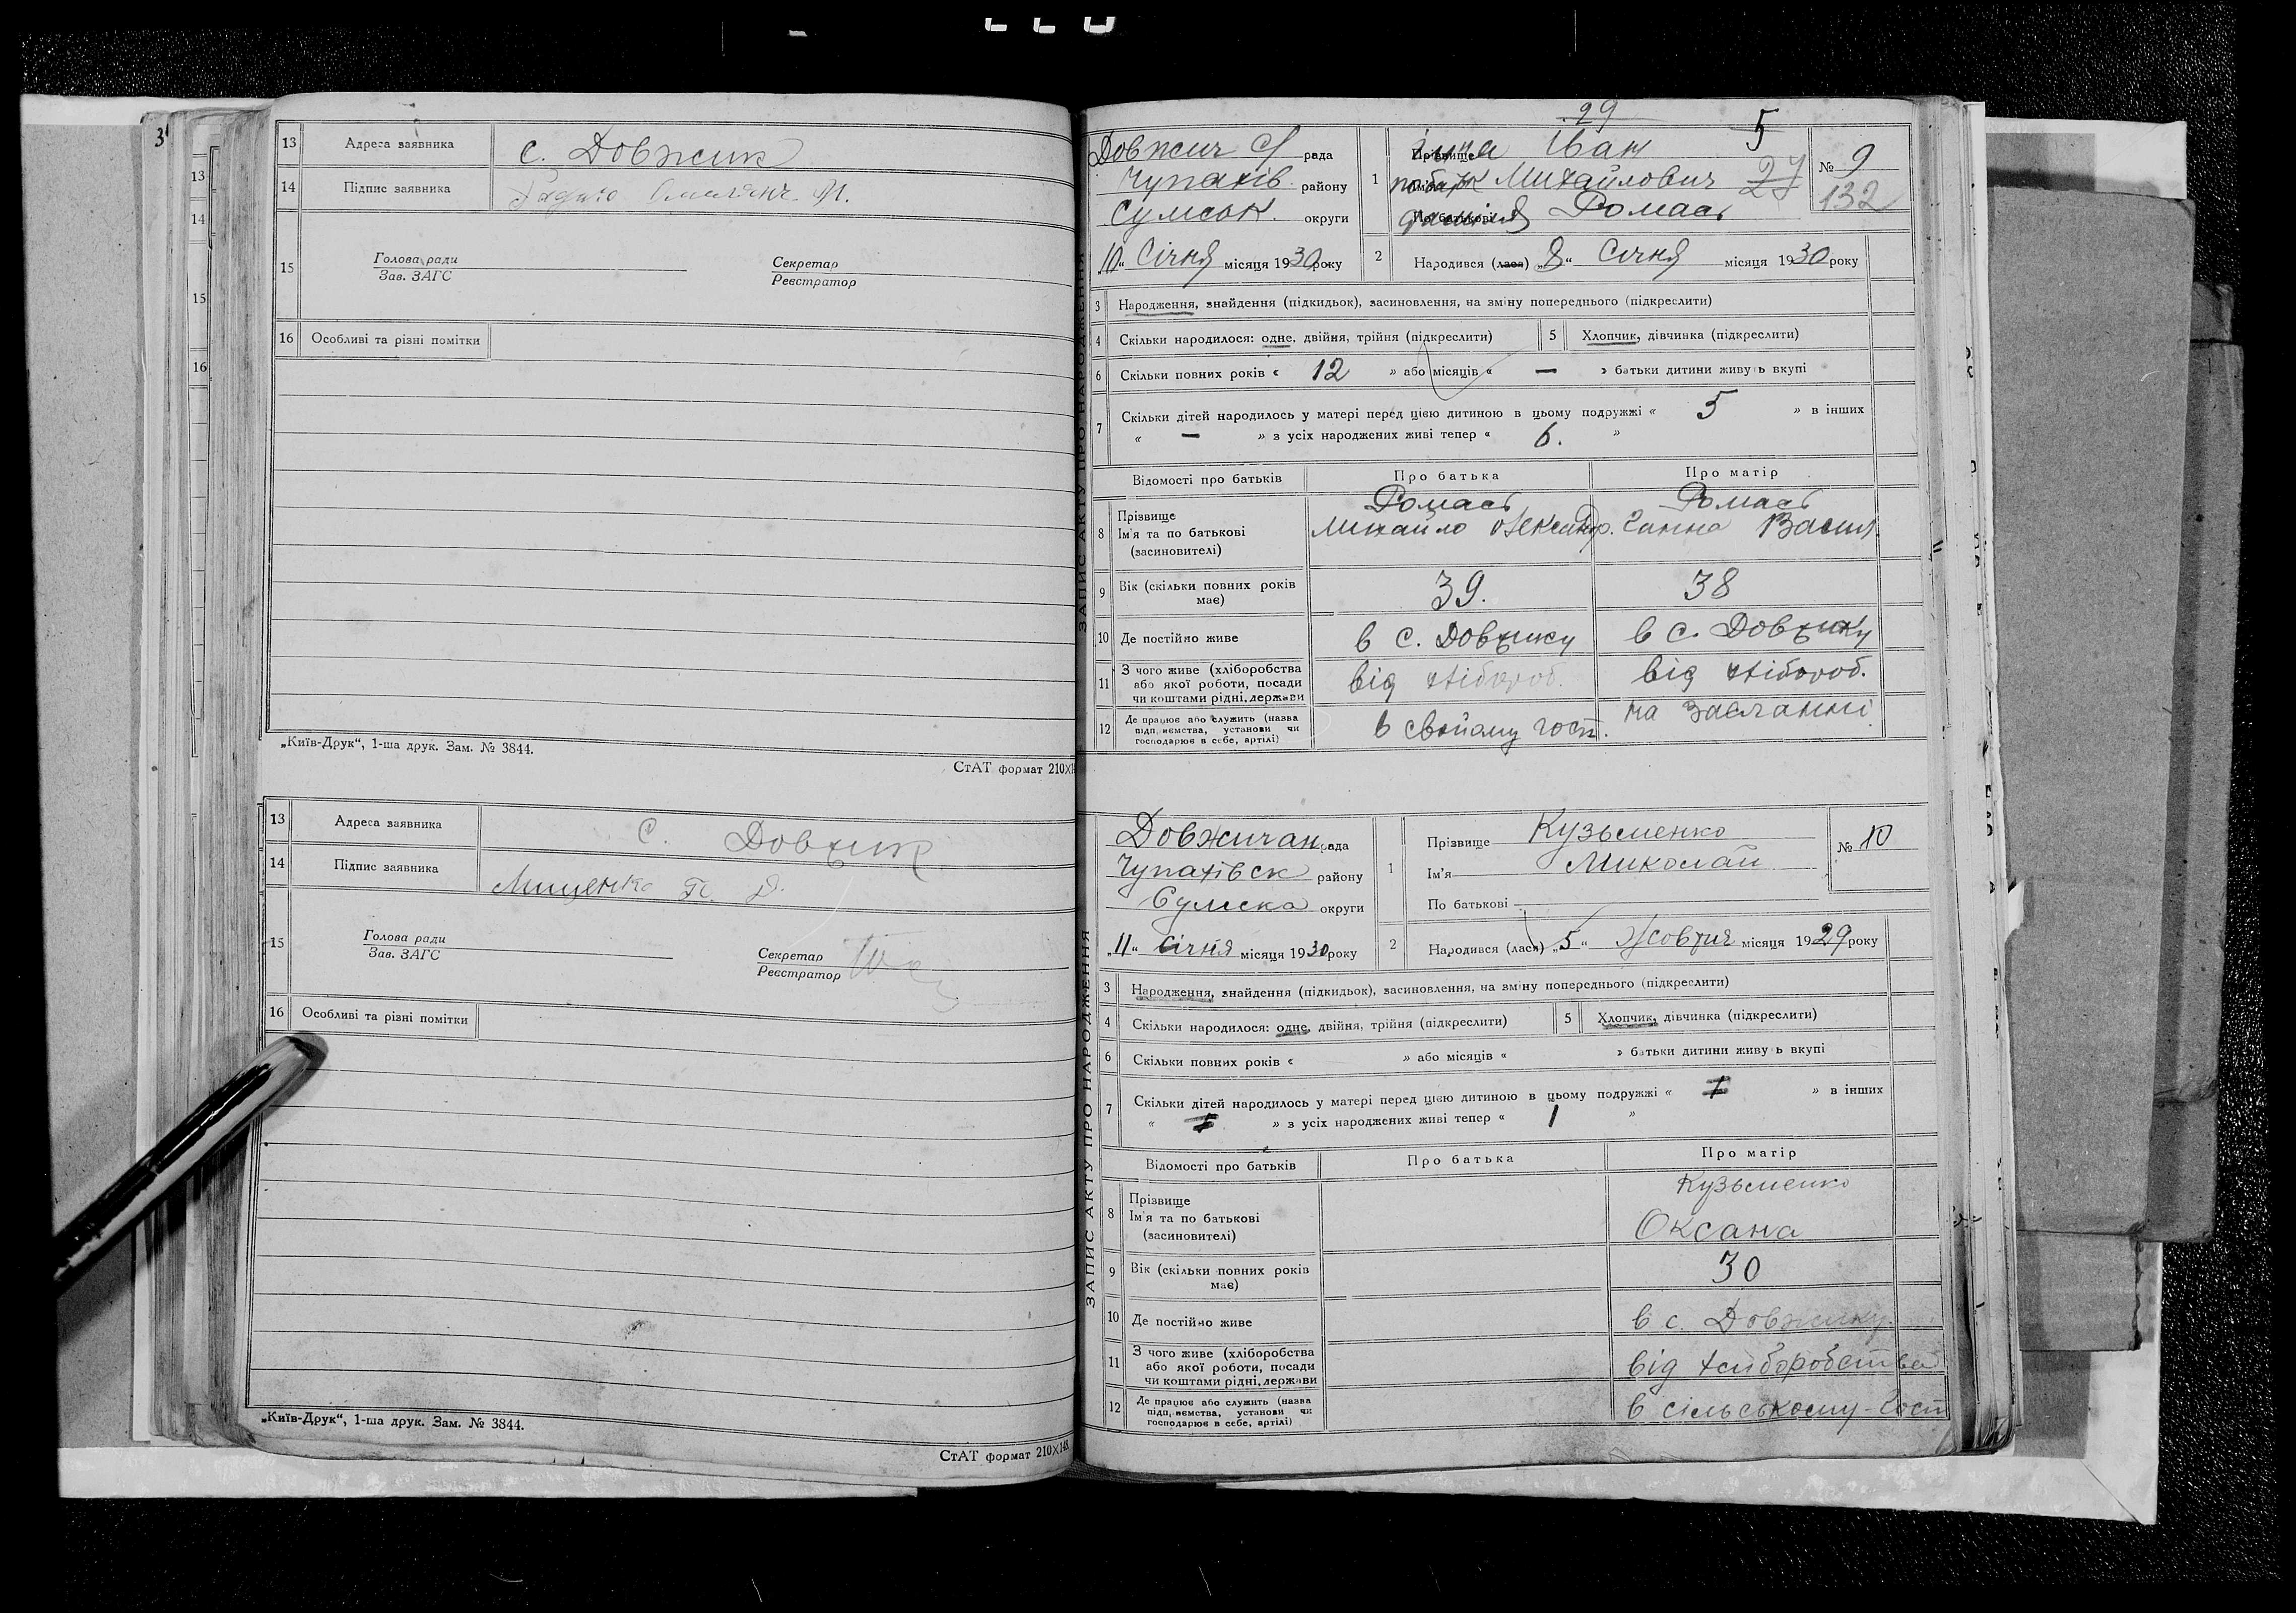 3
13
14
15
16
13 Адреса заявника с. Довжик
14 Підпис заявника
15 Голова ради Секретар
Зав. ЗАГС Реєстратор
16 Особливі та різні помітки
„Київ-Друк“, 1-ша друк. Зам. № 3844.
СтАТ формат 210×1
13 Адреса заявника с. Довжик
14 Підпис заявника Мищенко П. Д.
15 Голова ради Секретар
Зав. ЗАГС Реєстратор
16 Особливі та різні помітки
„Київ-Друк“, 1-ша друк. Зам. № 3844.
СтАТ формат 210×148
ЗАПИС АКТУ ПРО НАРОДЖЕННЯ
29
5
Довжич С/ рада
Чупахів. району
Сумськ. округи
„10“ Січня місяця 1930 року
1 Прізвище Іван
Михайлович 27
По батькові Ромась
№ 9
132
2 Народився (лася) „8“ Січня місяця 1930 року
3 Народження, знайдення (підкидьок), засиновлення, на зміну попереднього (підкреслити)
4 Скільки народилося: одне, двійня, трійня (підкреслити) 5 Хлопчик, дівчинка (підкреслити)
6 Скільки повних років « 12 » або місяців « — » батьки дитини живуть вкупі
7 Скільки дітей народилось у матері перед цією дитиною в цьому подружжі « 5 » в інших
« — » з усіх народжених живі тепер « 6. »
Відомості про батьків Про батька Про матір
8 Прізвище Ромась Ромась
Ім'я та по батькові Михайло Олександр. Ганна Васил.
(засиновителі)
9 Вік (скільки повних років має) 39. 38
10 Де постійно живе в с. Довжику в с. Довжику
11 З чого живе (хліборобства або якої роботи, посади чи коштами рідні, держави від хлібороб. від хлібороб.
12 Де працює або служить (назва підприємства, установи чи господарює в себе, артілі) в свойому госп. на
ЗАПИС АКТУ ПРО НАРОДЖЕННЯ
Довжичан. рада
Чупахівск району
Сумска округи
„11“ січня місяця 1930 року
1 Прізвище Кузьменко
Ім'я Миколай
По батькові
№ 10
2 Народився (лася) „5“ Жовтня місяця 1929 року
3 Народження, знайдення (підкидьок), засиновлення, на зміну попереднього (підкреслити)
4 Скільки народилося: одне, двійня, трійня (підкреслити) 5 Хлопчик, дівчинка (підкреслити)
6 Скільки повних років « » або місяців « » батьки дитини живуть вкупі
7 Скільки дітей народилось у матері перед цією дитиною в цьому подружжі « » в інших
« » з усіх народжених живі тепер « 1 »
Відомості про батьків Про батька Про матір
8 Прізвище Кузьменко
Ім'я та по батькові Оксана
(засиновителі)
9 Вік (скільки повних років має) 30
10 Де постійно живе в с. Довжику.
11 З чого живе (хліборобства або якої роботи, посади чи коштами рідні, держави від хліборобства
12 Де працює або служить (назва підприємства, установи чи господарює в себе, артілі) в сільському-госп